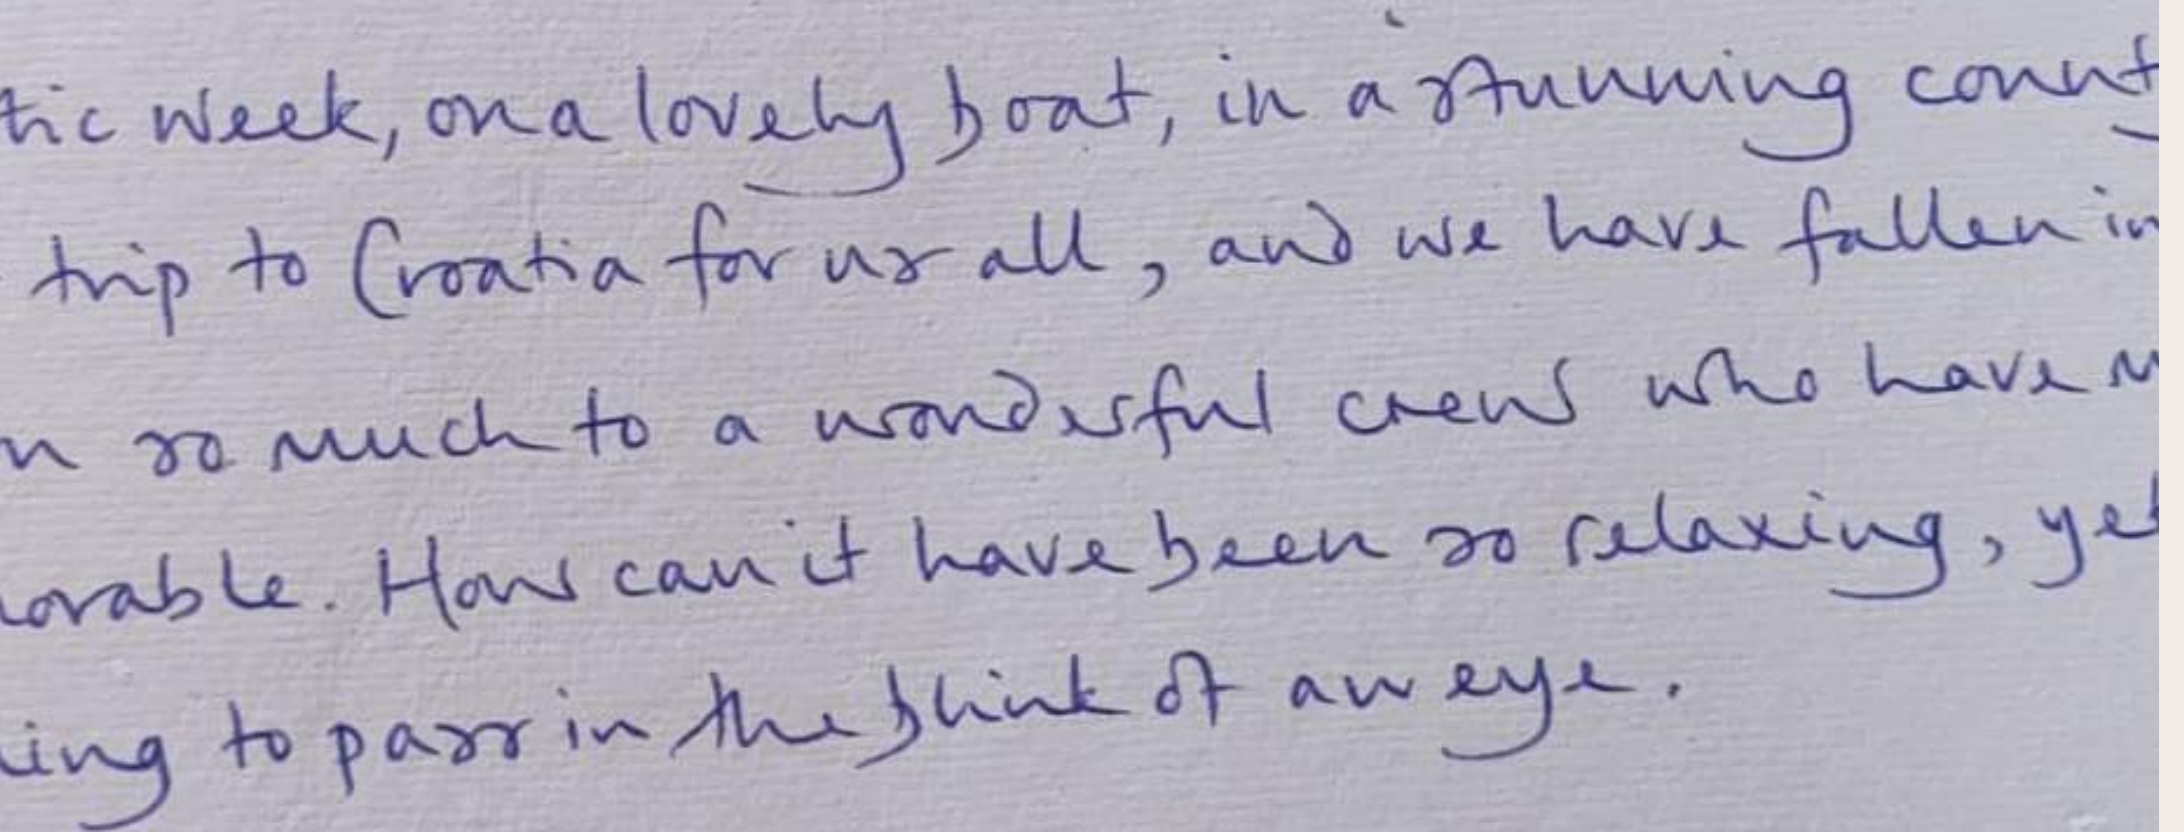 tic week, on a lovely boat, in a stunning count
trip to Croatia for us all, and we have fallen in
n so much to a wonderful crew who have m
orable. How can it have been so relaxing, yet
ing to pass in the blink of an eye.